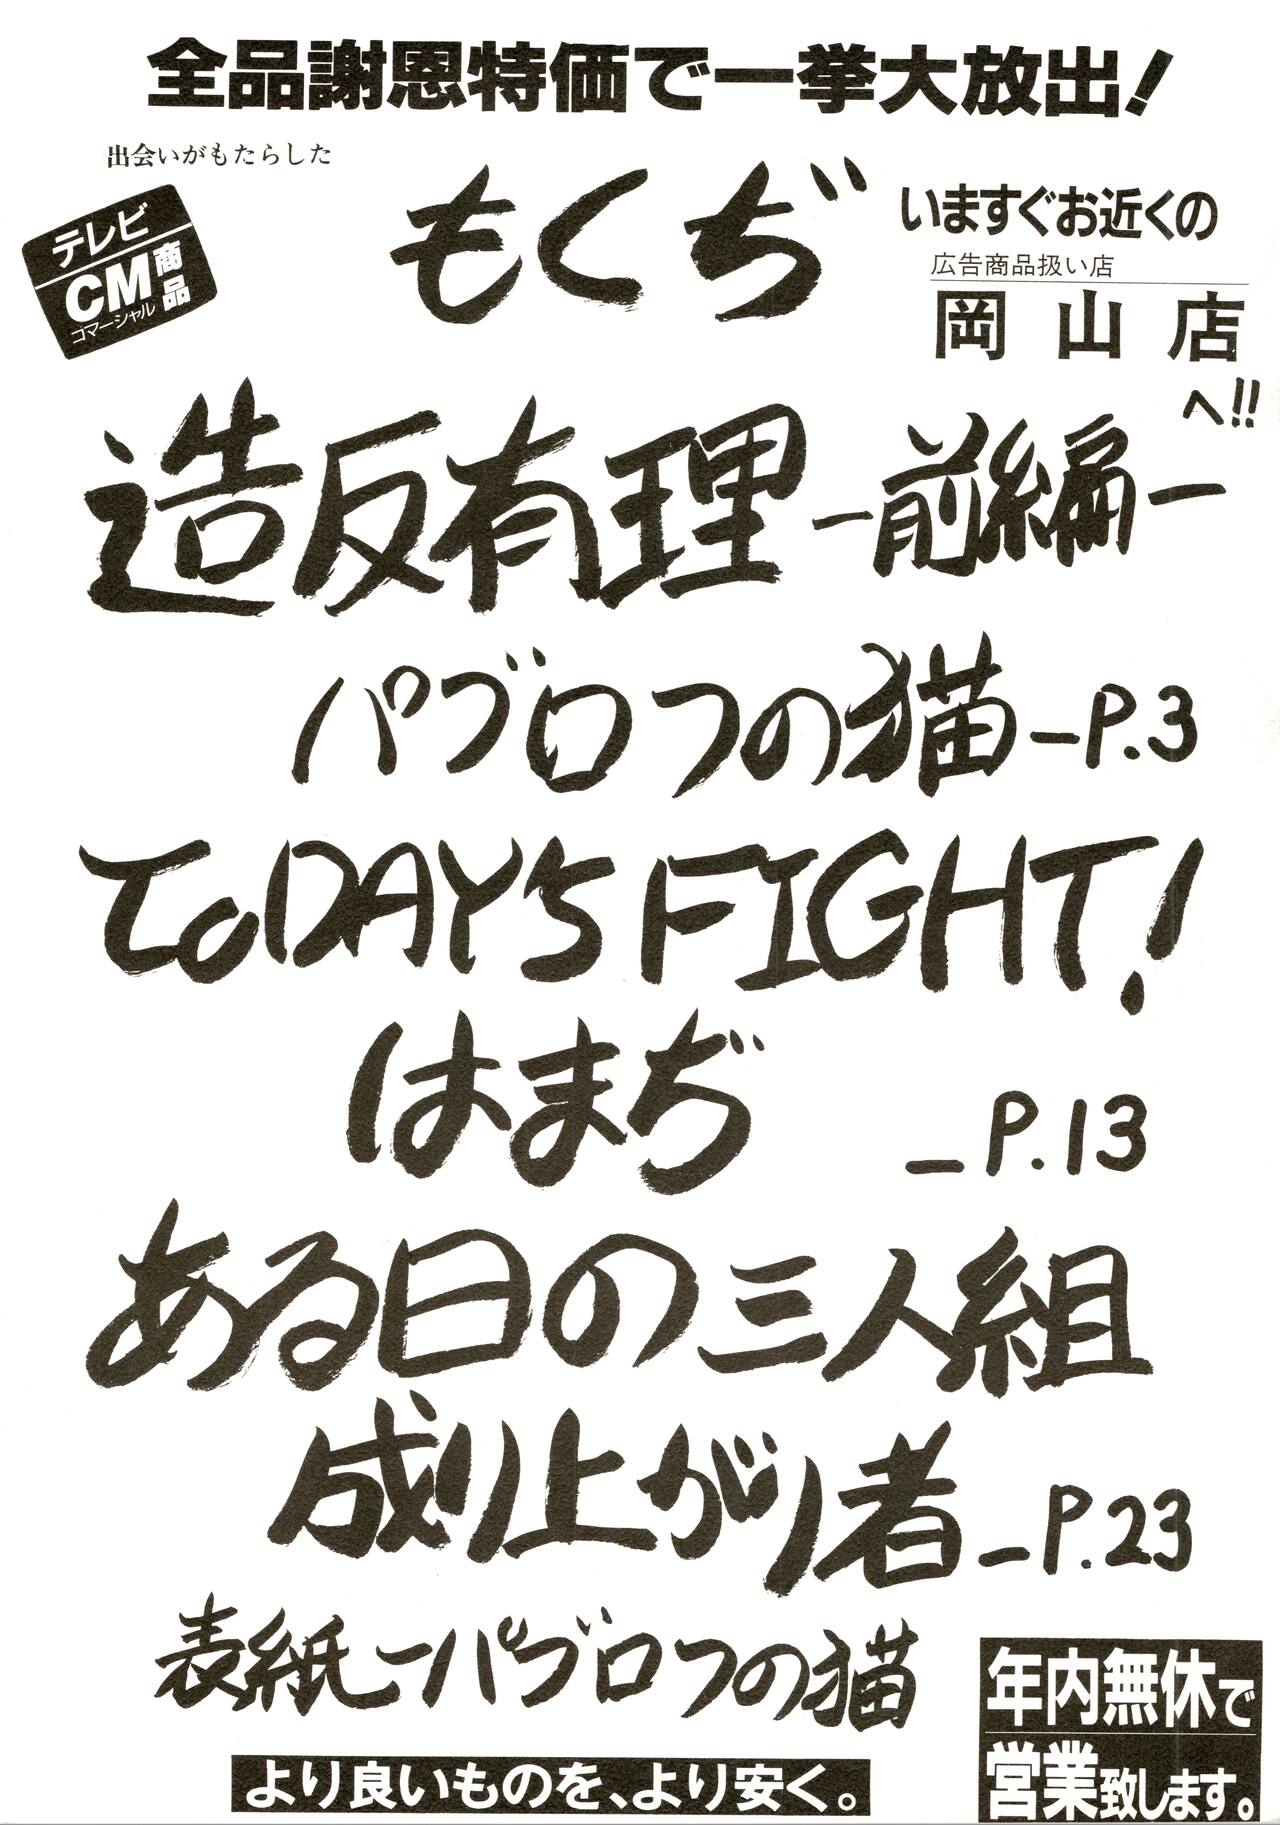 全品謝恩特価で一挙大放出!
出会いがもたらした
もくぢ
テレビ
CM商品
コマーシャル
いますぐお近くの
広告商品扱い店
岡山店
へ!!
造反有理 ー前編ー
パブロフの猫 ーP.3
ToDAY'S FIGHT!
はまぢ ーP.13
ある日の三人組
成り上がり者 ーP.23
表紙ーパブロフの猫
年内無休で
営業致します。
より良いものを、より安く。